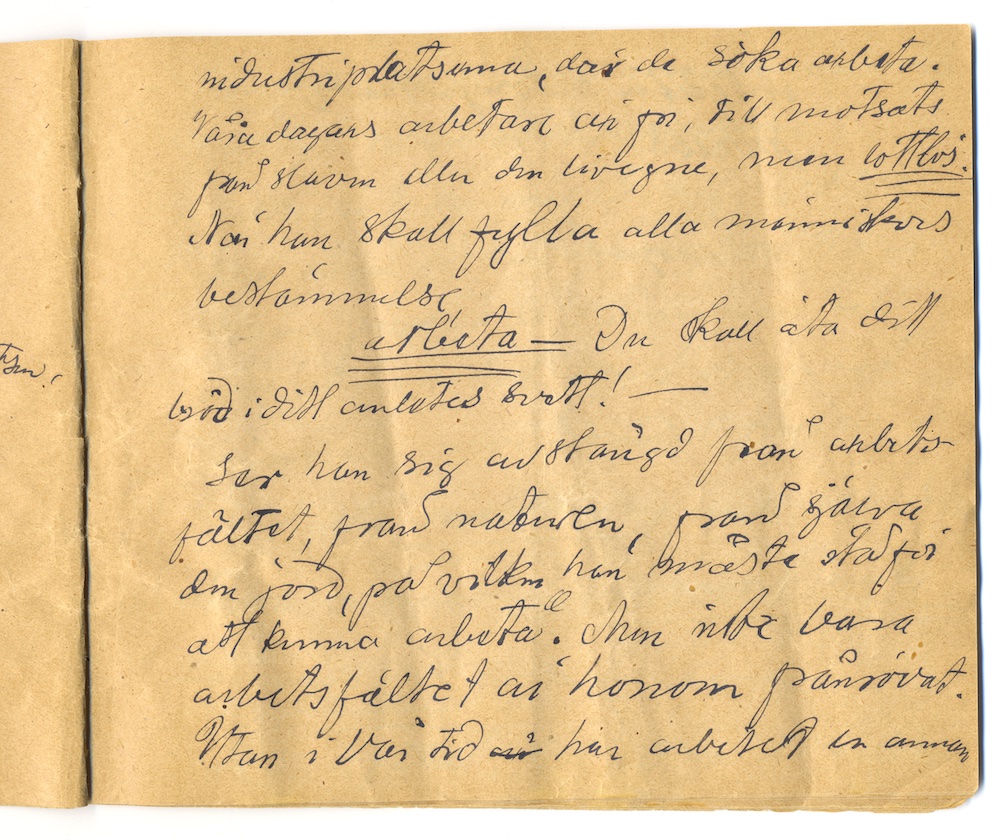 industriplatserna, där de söka arbeta.
Våra dagars arbetare är fri, till motsats
från slaven eller den livegne, men lottlös.
När han skall fylla alla människors
bestämmelse
arbeta — Du skall äta ditt
bröd i ditt anletes svett! —
Ser han sig avstängd från arbets-
fältet, från naturen, från själva
den jord, på vilken han måste stå för
att kunna arbeta. Men icke bara
arbetsfältet är honom frånrövat.
Utan i vår tid har arbetet en annan